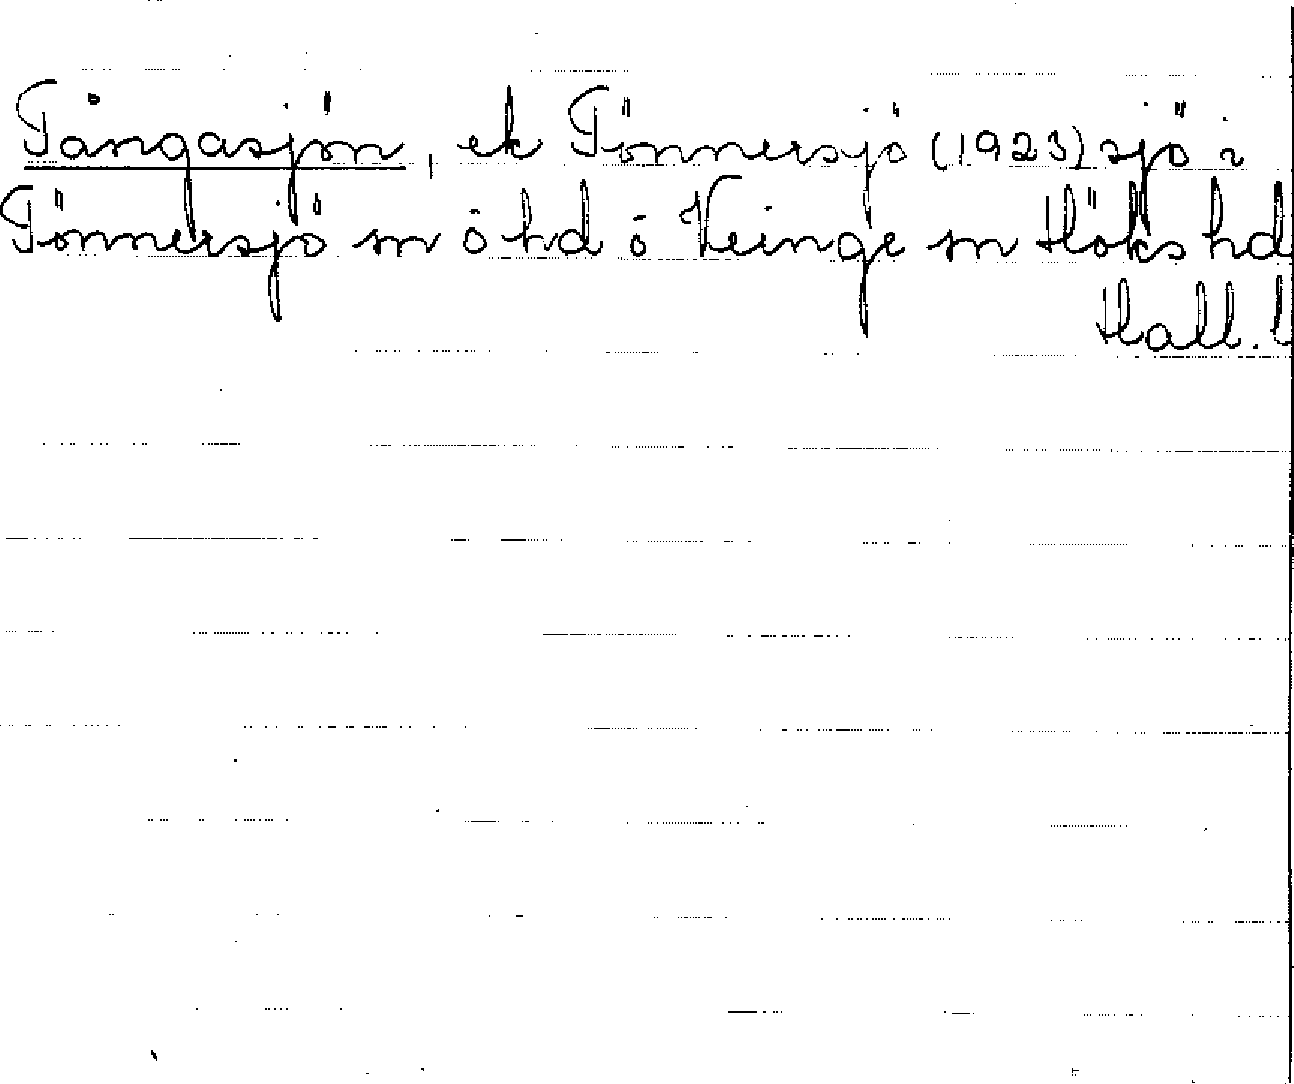 Tångasjön, ek Tönnersjö (1923) sjö i
Tönnersjö sn ö hd ö Veinge sn Höks hd
Hall. l